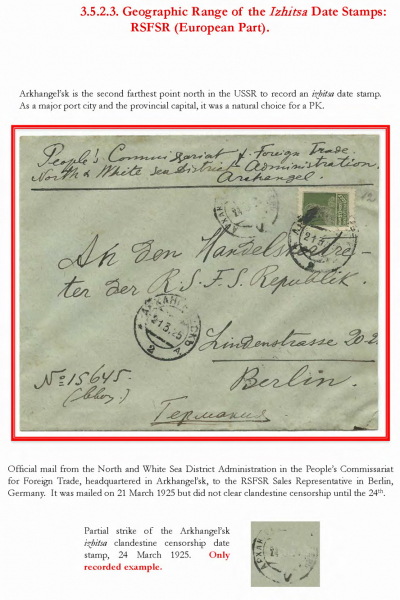 3.5.2.3. Geographic Range of the Izhitsa Date Stamps:
RSFSR (European Part).
Arkhangel'sk is the second farthest point north in the USSR to record an izhitsa date stamp.
As a major port city and the provincial capital, it was a natural choice for a PK.
People's Commissariat of Foreign Trade.
North & White Sea District Administration,
Archangel.
АРХАН
24
21 3
An den Handelsvertre-
ter der R.S.F.S. Republik.
АРХАНГЕЛЬСКЪ
21.3.25
2 А
Lindenstrasse 20-2
Berlin.
№ 15645.
Германия
Official mail from the North and White Sea District Administration in the People's Commissariat
for Foreign Trade, headquartered in Arkhangel'sk, to the RSFSR Sales Representative in Berlin,
Germany. It was mailed on 21 March 1925 but did not clear clandestine censorship until the 24th.
Partial strike of the Arkhangel'sk
izhitsa clandestine censorship date
stamp, 24 March 1925. Only
recorded example.
АРХАН
24